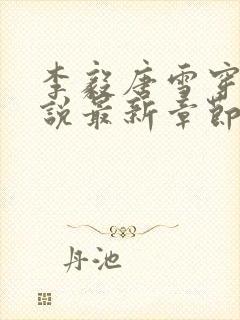 李毅唐雪穿
说最新章节
丹池